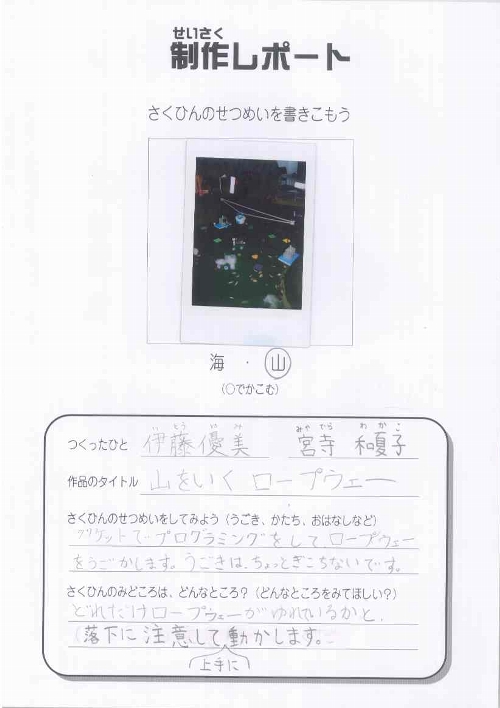 せいさく
制作レポート
さくひんのせつめいを書きこもう
海 ・ 山
(○でかこむ)
いとう ゆみ みやでら わかこ
つくったひと 伊藤優美 宮寺 和夏子
作品のタイトル 山をいく ロープウェー
さくひんのせつめいをしてみよう (うごき、かたち、おはなしなど)
プログラミングをして ロープウェー
をうごかします。うごきは、ちょっとぎこちないです。
さくひんのみどころは、どんなところ? (どんなところをみてほしい?)
どれだけロープウェーがゆれているかと、
落下に注意して動かします。
上手に